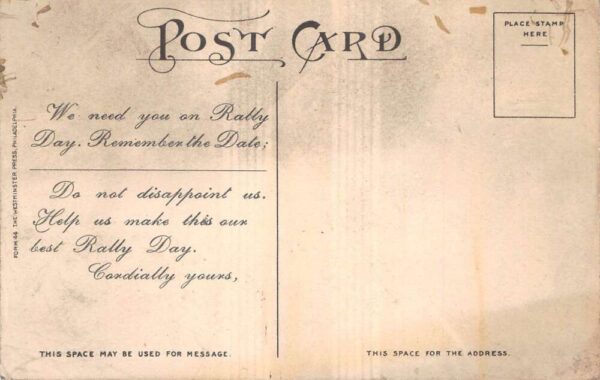 POST CARD
PLACE STAMP
HERE
We need you on Rally
Day. Remember the Date;
Do not disappoint us.
Help us make this our
best Rally Day.
Cordially yours,
FORM 66 THE WESTMINSTER PRESS, PHILADELPHIA.
THIS SPACE MAY BE USED FOR MESSAGE.
THIS SPACE FOR THE ADDRESS.